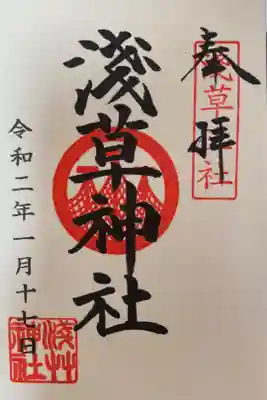 奉拝
浅草神社
淺草神社
令和二年一月十七日
淺草神社